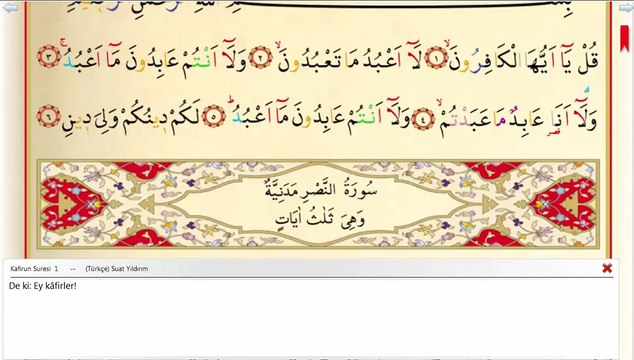 قُلْ يَٓا اَيُّهَا الْكَافِرُونَۙ ﴿١﴾ لَٓا اَعْبُدُ مَا تَعْبُدُونَۙ ﴿٢﴾ وَلَٓا اَنْتُمْ عَابِدُونَ مَٓا اَعْبُدُۚ ﴿٣﴾
وَلَٓا اَنَا۬ عَابِدٌ مَا عَبَدْتُمْۙ ﴿٤﴾ وَلَٓا اَنْتُمْ عَابِدُونَ مَٓا اَعْبُدُۜ ﴿٥﴾ لَكُمْ د۪ينُكُمْ وَلِيَ د۪ينِ ﴿٦﴾
سُورَةُ النَّصْرِ مَدَنِيَّةٌ
وَهِيَ ثَلٰثُ اٰيَاتٍ
Kafirun Suresi 1 -- (Türkçe) Suat Yıldırım
De ki: Ey kâfirler!